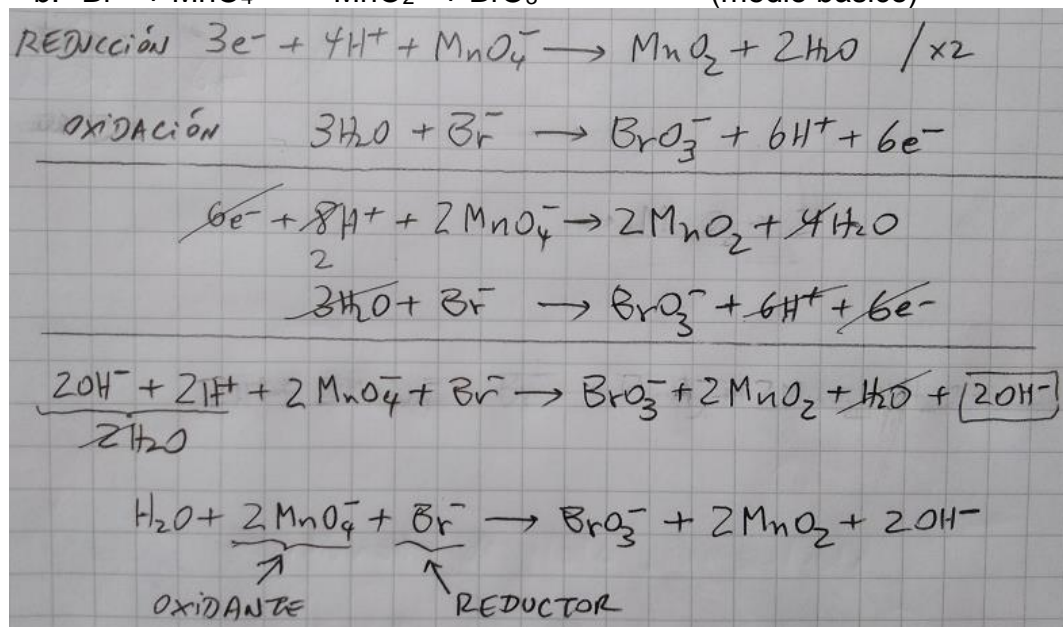 REDUCCIÓN 3e⁻ + 4H⁺ + MnO₄⁻ → MnO₂ + 2H₂O /x2
OXIDACIÓN 3H₂O + Br⁻ → BrO₃⁻ + 6H⁺ + 6e⁻
6e⁻ + 8H⁺ + 2MnO₄⁻ → 2MnO₂ + 4H₂O
2
3H₂O + Br⁻ → BrO₃⁻ + 6H⁺ + 6e⁻
2OH⁻ + 2H⁺ + 2MnO₄⁻ + Br⁻ → BrO₃⁻ + 2MnO₂ + H₂O + 2OH⁻
2H₂O
H₂O + 2MnO₄⁻ + Br⁻ → BrO₃⁻ + 2MnO₂ + 2OH⁻
OXIDANTE REDUCTOR